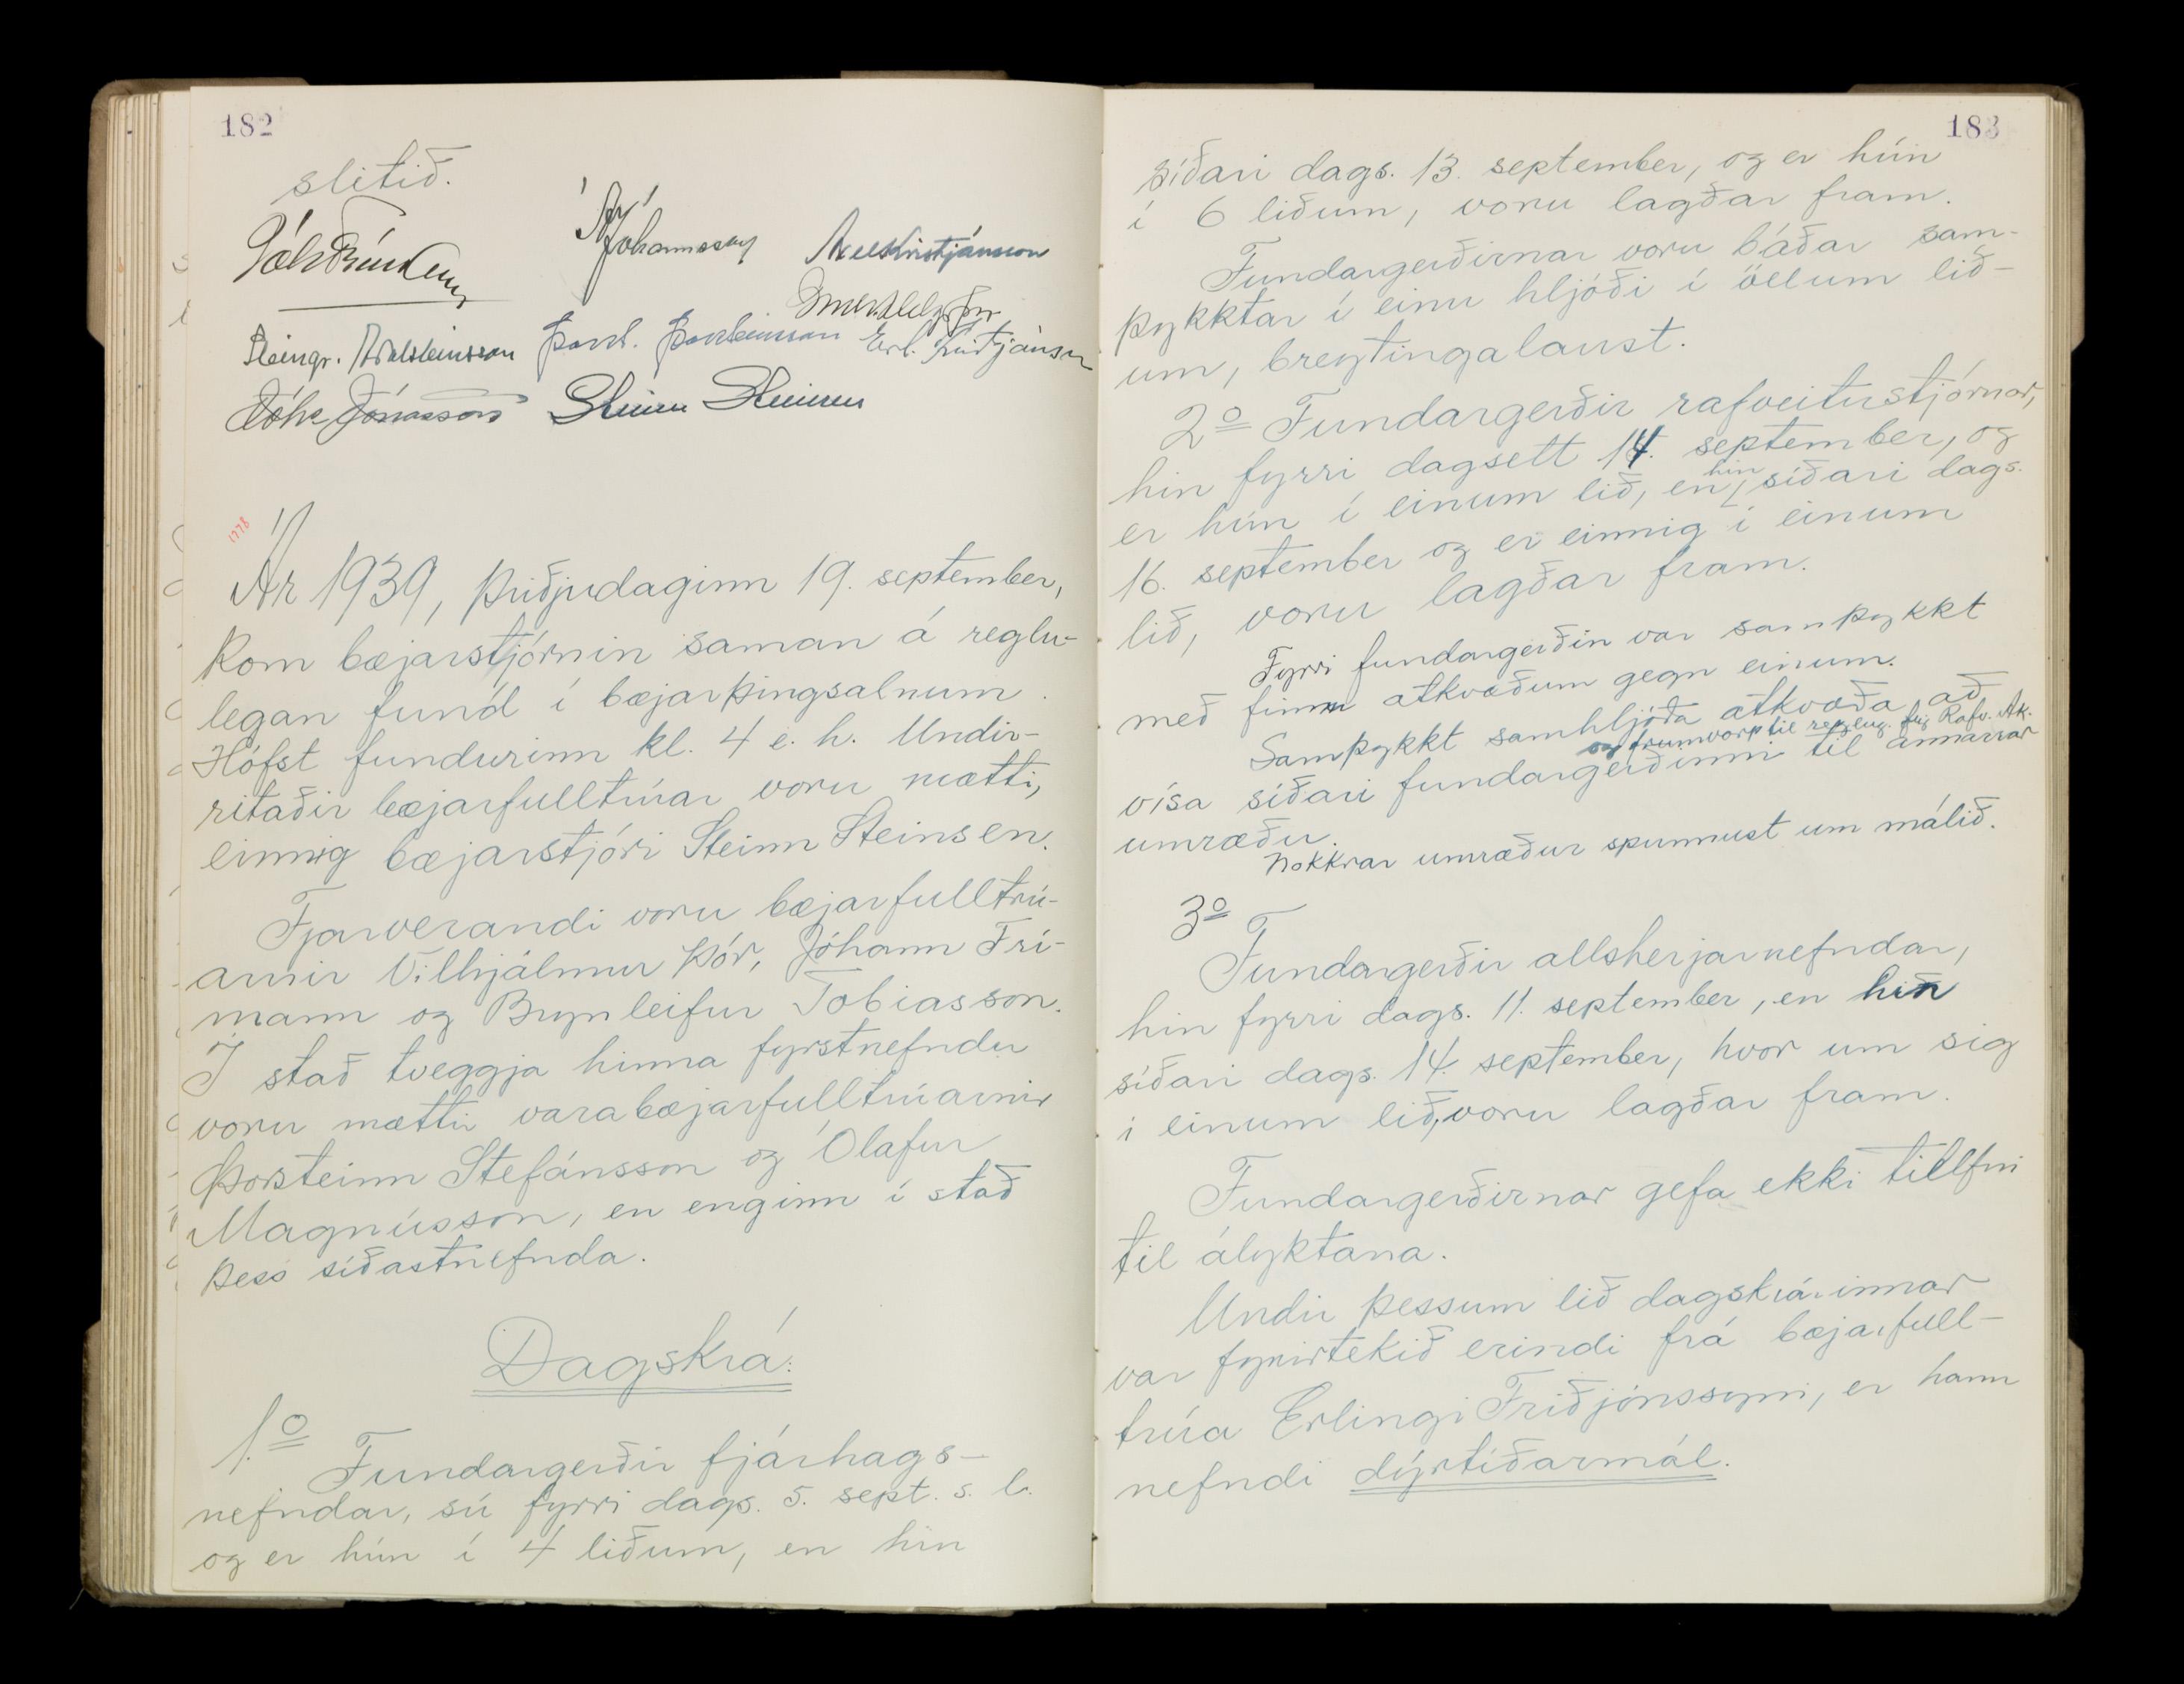 182
slitið.
Á Jóhannesson
Axel Kristjánsson
Steingr. Aðalsteinsson Þorst. Þorsteinsson Erl. Friðjónsson
Jóhs Jónasson Steinn Steinsen
1778
Ár 1939, þriðjudaginn 19. september,
kom bæjarstjórnin saman á reglu-
legan fund í bæjarþingsalnum.
Hófst fundurinn kl. 4 e. h. Undir-
ritaðir bæjarfulltrúar voru mættir,
einnig bæjarstjóri Steinn Steinsen.
Fjarverandi voru bæjarfulltrú-
arnir Vilhjálmur Þór, Jóhann Frí-
mann og Brynleifur Tobiasson.
Í stað tveggja hinna fyrstnefndu
voru mættir varabæjarfulltrúarnir
Þorsteinn Stefánsson og Ólafur
Magnússon, en enginn í stað
þess síðastnefnda.
Dagskrá:
1.o
Fundargerðir fjárhags-
nefndar, sú fyrri dags. 5. sept. s. l.
og er hún í 4 liðum, en hin
183
síðari dags. 13. september, og er hún
í 6 liðum, voru lagðar fram.
Fundargerðirnar voru báðar sam-
þykktar í einu hljóði í öllum lið-
um, breytingalaust.
2o Fundargerðir rafveitustjórnar,
hin fyrri dagsett 14. september, og
er hún í einum lið, en hin síðari dags.
16. september og er einnig í einum
lið, voru lagðar fram.
Fyrri fundargerðin var samþykkt
með fimm atkvæðum gegn einum.
Samþykkt samhljóða atkvæða, að
vísa síðari fundargerðinni og frumvarp til reglug. fyr Rafv. Ak. til annarrar
umræðu.
Nokkrar umræður spunnust um málið.
3o
Fundargerðir allsherjarnefndar,
hin fyrri dags. 11. september, en hin
síðari dags. 14. september, hvor um sig
í einum lið, voru lagðar fram.
Fundargerðirnar gefa ekki tillefni
til ályktana.
Undir þessum lið dagskrárinnar
var fyrirtekið erindi frá bæjarfull-
trúa Erlingi Friðjónssyni, er hann
nefndi dýrtíðarmál.